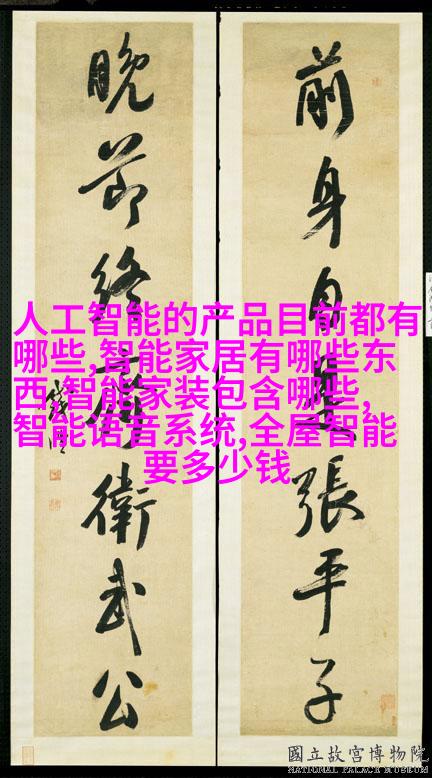 前身自張平子
晚節終衛武公
人工智能的产品目前都有
哪些,智能家居有哪些东
西,智能家装包含哪些,
智能语音系统,全屋智能
要多少钱
國立故宮博物院
NATIONAL PALACE MUSEUM